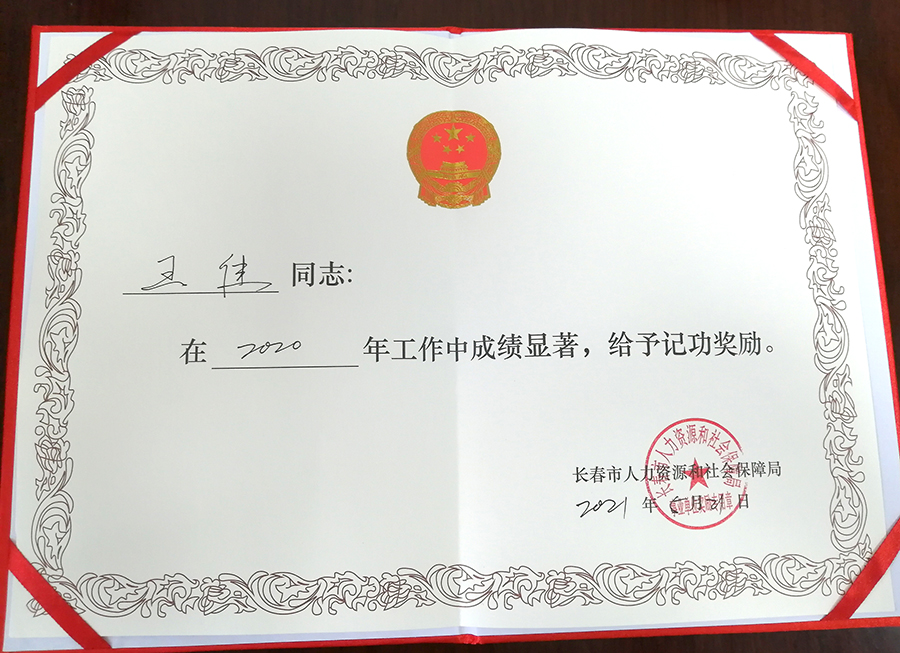 王佳 同志:
在 2020 年工作中成绩显著，给予记功奖励。
长春市人力资源和社会保障局
2021 年 5月21日
长春市人力资源和社会保障局